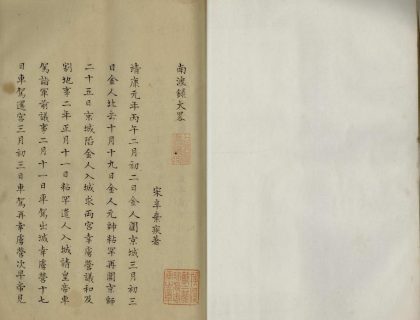 南渡錄大畧
宋辛棄疾著
靖康元年丙午二月初二日金人圍京城三月初三
日金人北去十月十九日金人元帥粘罕再圍京師
二十五日京城陷金人入城求兩宮幸虜營議和及
割地事二年正月十一日粘罕遣人入城請皇帝車
駕詣軍前議事二月十一日車駕出城幸虜營十七
日車駕還宮三月初三日車駕再幸虜營次早帝見